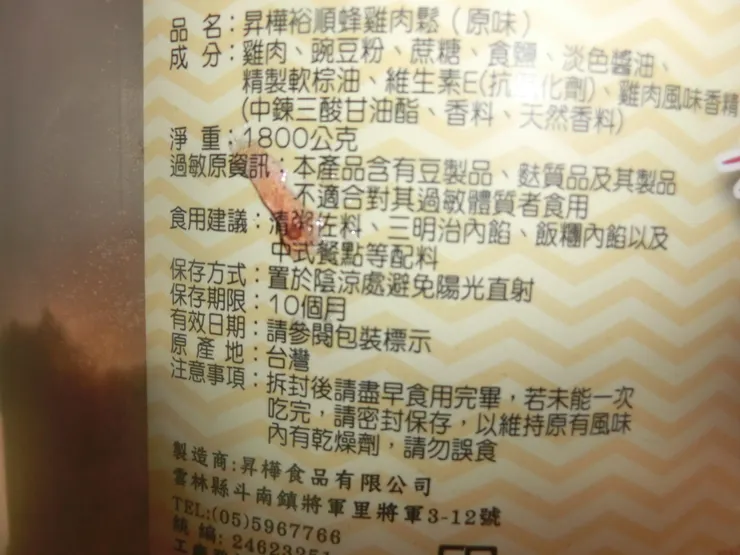 品 名：昇樺裕順蜂雞肉鬆（原味）
成 分：雞肉、豌豆粉、蔗糖、食鹽、淡色醬油、
精製軟棕油、維生素E(抗化劑)、雞肉風味香精
(中鍊三酸甘油酯、香料、天然香料)
淨 重：1800公克
過敏原資訊：本產品含有豆製品、麩質品及其製品
不適合對其過敏體質者食用
食用建議：清粥佐料、三明治內餡、飯糰內餡以及
中式餐點等配料
保存方式：置於陰涼處避免陽光直射
保存期限：10個月
有效日期：請參閱包裝標示
原 產 地：台灣
注意事項：拆封後請盡早食用完畢，若未能一次
吃完，請密封保存，以維持原有風味
內有乾燥劑，請勿誤食
製造商:昇樺食品有限公司
雲林縣斗南鎮將軍里將軍3-12號
TEL:(05)5967766
統編: 24623251